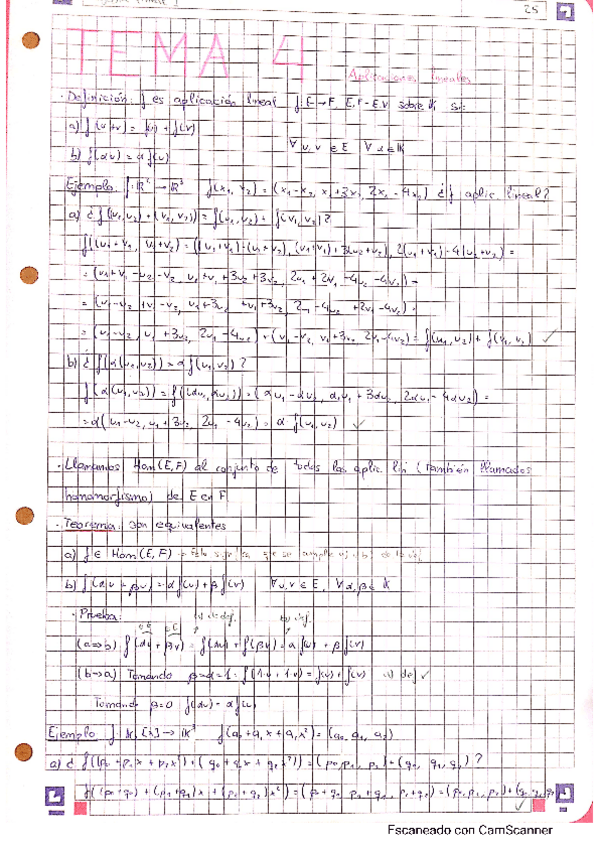 25
TEMA 4
Aplicaciones lineales
· Definición: f es aplicación lineal f: E → F, E, F - E.V sobre K si:
a) f(u+v) = f(u) + f(v)
b) f(αu) = α f(u) ∀ u,v ∈ E ∀ α ∈ K
Ejemplo f: R² → R³ f(x₁, x₂) = (x₁-x₂, x₁+3x₂, 2x₁-4x₂) ¿f aplic. lineal?
a) ¿ f((u₁,u₂) + (v₁,v₂)) = f(u₁,u₂) + f(v₁,v₂)?
f(u₁+v₁, u₂+v₂) = ((u₁+v₁)-(u₂+v₂), (u₁+v₁)+3(u₂+v₂), 2(u₁+v₁)-4(u₂+v₂)) =
= (u₁+v₁-u₂-v₂, u₁+v₁+3u₂+3v₂, 2u₁+2v₁-4u₂-4v₂) =
= (u₁-u₂+v₁-v₂, u₁+3u₂+v₁+3v₂, 2u₁-4u₂+2v₁-4v₂) =
= (u₁-u₂, u₁+3u₂, 2u₁-4u₂) + (v₁-v₂, v₁+3v₂, 2v₁-4v₂) = f(u₁,u₂) + f(v₁,v₂) ✓
b) ¿ f(α(u₁,u₂)) = α f(u₁,u₂)?
f(α(u₁,u₂)) = f((αu₁,αu₂)) = (αu₁-αu₂, αu₁+3αu₂, 2αu₁-4αu₂) =
= α(u₁-u₂, u₁+3u₂, 2u₁-4u₂) = α f(u₁,u₂) ✓
· Llamamos Hom(E,F) al conjunto de todas las aplic. lin (también llamados
homomorfismo) de E en F
· Teorema: son equivalentes
a) f ∈ Hom(E,F) → Esto significa que se cumple a) y b) de la def.
b) f(αu + βv) = α f(u) + β f(v) ∀ u,v ∈ E, ∀ α,β ∈ K
· Prueba:
a) de def. b) def.
(a⇒b) f(αu + βv) = f(αu) + f(βv) = α f(u) + β f(v)
(b→a) Tomando β=α=1: f(1·u + 1·v) = f(u) + f(v) a) def ✓
Tomando β=0 f(αu) = α f(u)
Ejemplo f: R₂[x] → R³ f(a₀ + a₁x + a₂x²) = (a₀, a₁, a₂)
a) ¿ f((p₀+p₁x+p₂x²) + (q₀+q₁x+q₂x²)) = (p₀,p₁,p₂) + (q₀,q₁,q₂)?
f((p₀+q₀) + (p₁+q₁)x + (p₂+q₂)x²) = (p₀+q₀, p₁+q₁, p₂+q₂) = (p₀,p₁,p₂) + (q₀,q₁,q₂) ✓
Escaneado con CamScanner